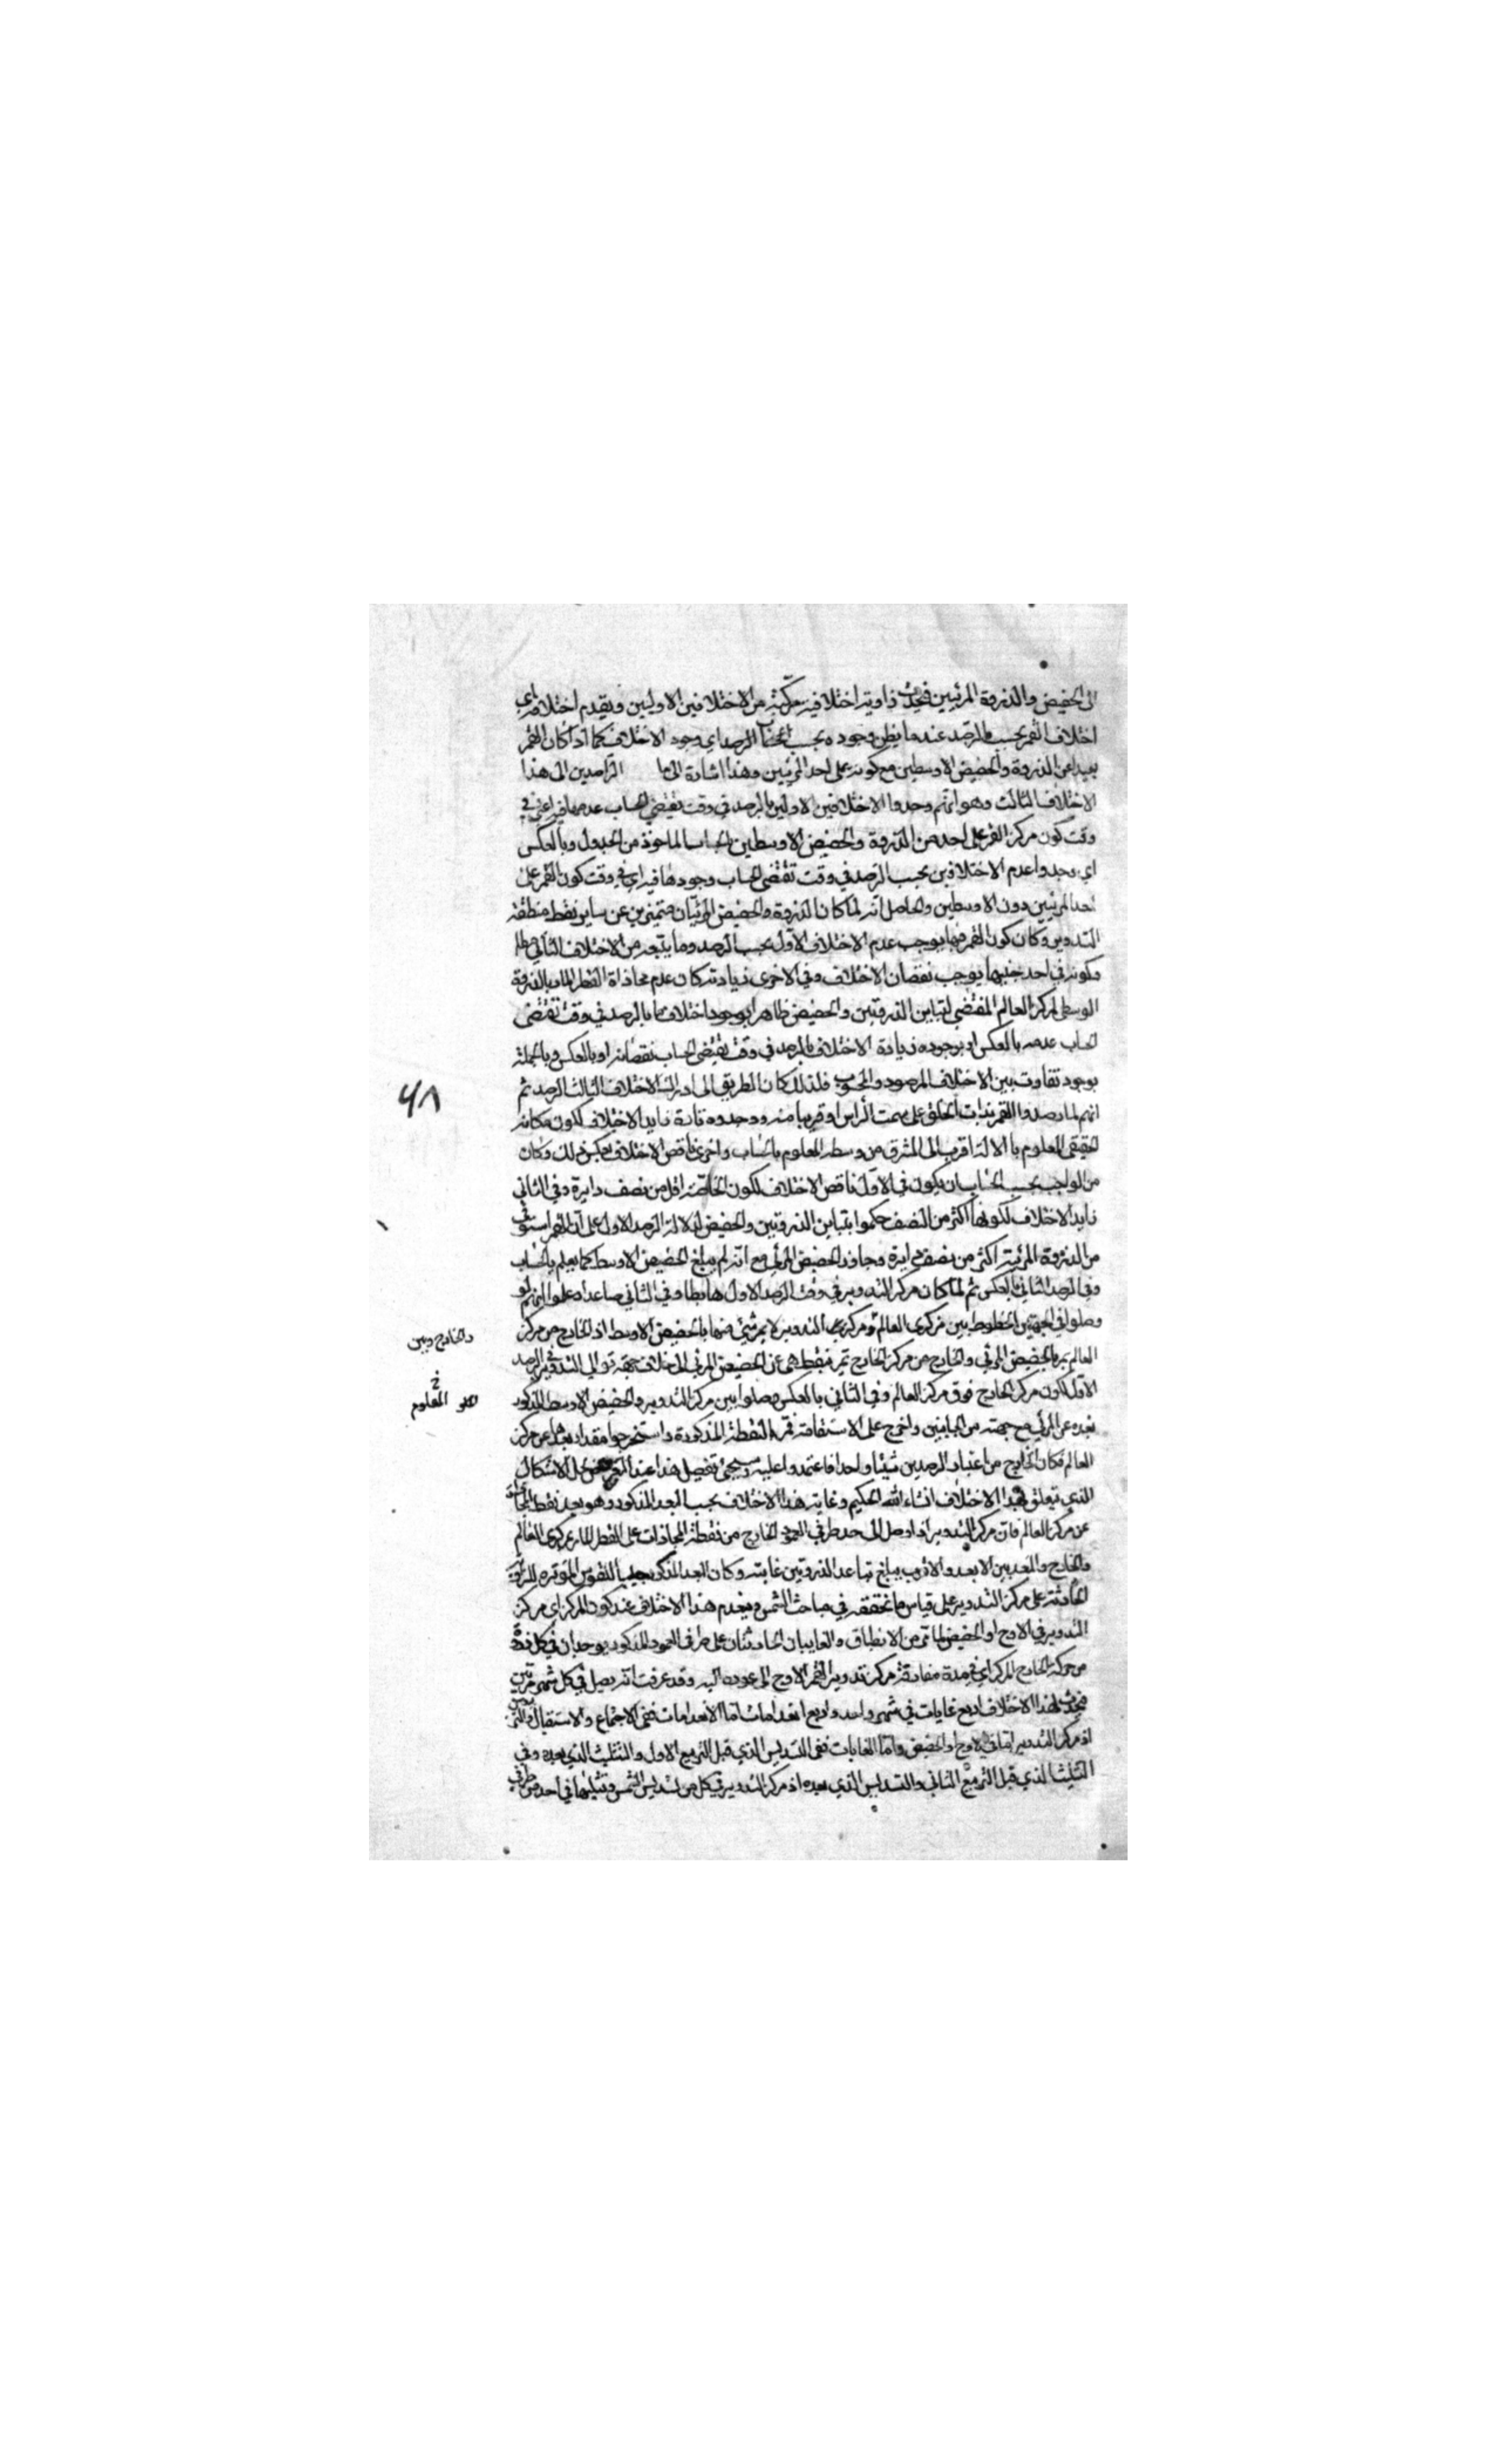 الى الحضيض والذروة المرئيين فيحدث زاوية اختلافية مركبة من الاختلافين الاولين ويقدم اختلافه اي
اختلاف القمر بحسب الرصد عند ما يظن وجوده بحسب الحساب الرصد اي وجود الاختلاف كما اذا كان القمر
بعيدا عن الذروة والحضيض الاوسطين مع كونه على احد المرئيين وهذا اشارة الى ما الراصدين الى هذا
الاختلاف الثالث وهو انهم وجدوا الاختلافين الاولين بالرصد في وقت يقتضي الحساب عدمهما فيه اعني في
وقت كون مركز القمر على احد من الذروة والحضيض الاوسطين بالحساب الماخوذ من الجدول وبالعكس
اي وجدوا عدم الاختلافين بحسب الرصد في وقت تقتضى الحساب وجودهما فيه اي في وقت كون القمر على
احد المرئيين دون الاوسطين والحاصل انه لما كان الذروة والحضيض المرئيان متميزين عن ساير نقط منطقة
التدوير وكان كون القمر فيهما يوجب عدم الاختلاف الاول بحسب الرصد وما يتبعه من الاختلاف الثاني
وكونه في احد جنبيهما يوجب نقصان الاختلاف وفي الاخرى زيادته كان عدم محاذاة القطر المار بالذروة
الوسطى لمركز العالم المقتضي لتباين الذروتين والحضيض ظاهرا بوجود اختلاف ما بالرصد في وقت تقتضى
الحساب عدمه بالعكس او بوجوده زيادة الاختلاف بالرصد في وقت يقتضى الحساب نقصانه او بالعكس وبالجملة
بوجود تفاوت بين الاختلاف المرصود والمحسوب فلذلك كان الطريق الى ادراك الاختلاف الثالث الرصد ثم
انهم لما رصدوا القمر بذات الحلق على سمت الراس او قريبا منه ووجدوه تارة زايد الاختلاف لكون مكانه
الحقيقي المعلوم بالالة اقرب الى المشرق من وسطه المعلوم بالحساب واخرى ناقص الاختلاف بعكس ذلك وكان
من الواجب بحسب الحساب ان يكون في الاول ناقص الاختلاف لكون الخاصة اقل من نصف دايرة وفي الثاني
زايد الاختلاف لكونها اكثر من النصف حكموا بتباين الذروتين والحضيض لدلالة الرصد الاول على ان القمر استوفى
من الذروة المرئية اكثر من نصف دايرة وجاوز الحضيض المرئي مع انه لم يبلغ الحضيض الاوسط كما يعلم بالحساب
وفي الرصد الثاني بالعكس ثم لما كان مركز التدوير في وقت الرصد الاول هابطا وفي الثاني صاعدا وعلموا انهم لو
وصلوا في الجهتين الخطوط بين مركزي العالم ومركزي التدوير لا يمر شئ منهما بالحضيض الاوسط اذ الخارج من مركز
والخارج وبين
العالم يمر بالحضيض المرئي والخارج من مركز الخارج تمر بنقطة هي عن الحضيض المرئي الى خلاف جهة توالي التدوير في الرصد
الاول لكون مركز الخارج فوق مركز العالم وفي الثاني بالعكس وصلوا بين مركز التدوير والحضيض الاوسط المذكور
المعلوم
بعده عن المرئي مع جهته من الجانبين واخرج على الاستقامة فمر بالنقطة المذكورة واستخرجوا مقدار بعدها عن مركز
العالم فكان الخارج من اعتبار الرصدين شيئا واحدا فاعتمدوا عليه وسيجئ تفصيل هذا عند حل الاشكال
الذي يتعلق بهذا الاختلاف انشاء الله الحكيم وغاية هذا الاختلاف بحسب البعد المذكور وهو بعد نقطة المحاذاة
عن مركز العالم فان مركز التدوير اذا وصل الى احد طرفي العمود الخارج من نقطة المحاذات على القطر المار بمركزي العالم
والخارج والبعدين الابعد والاقرب يبلغ تباعد الذروتين غايته وكان البعد المذكور جيبا للقوس الموترة للزاوية
الحادثة على مركز التدوير على قياس ما تحققه في مباحث الشمس وينعدم هذا الاختلاف عند كون المركز اي مركز
التدوير في الاوج او الحضيض لما مر من الانطباق والغايتان الحادثتان على طرفي العمود المذكور يوجدان في كل دورة
من حركة الخارج المركز اي في مدة مفارقة مركز تدوير القمر الاوج الى عوده اليه وقد عرفت انه يصل في كل شهر مرتين
فيحدث لهذا الاختلاف اربع غايات في شهر واحد واربع انعدامات اما الانعدامات ففي الاجتماع والاستقبال والتربيعين
اذ مركز التدوير اما في الاوج او الحضيض واما الغايات ففي التسديس الذي قبل التربيع الاول والتثليث الذي بعده وفي
التثليث الذي قبل التربيع الثاني والتسديس الذي بعده اذ مركز التدوير في كل من تسديس الشمس وتثليثها في احد من طرفي